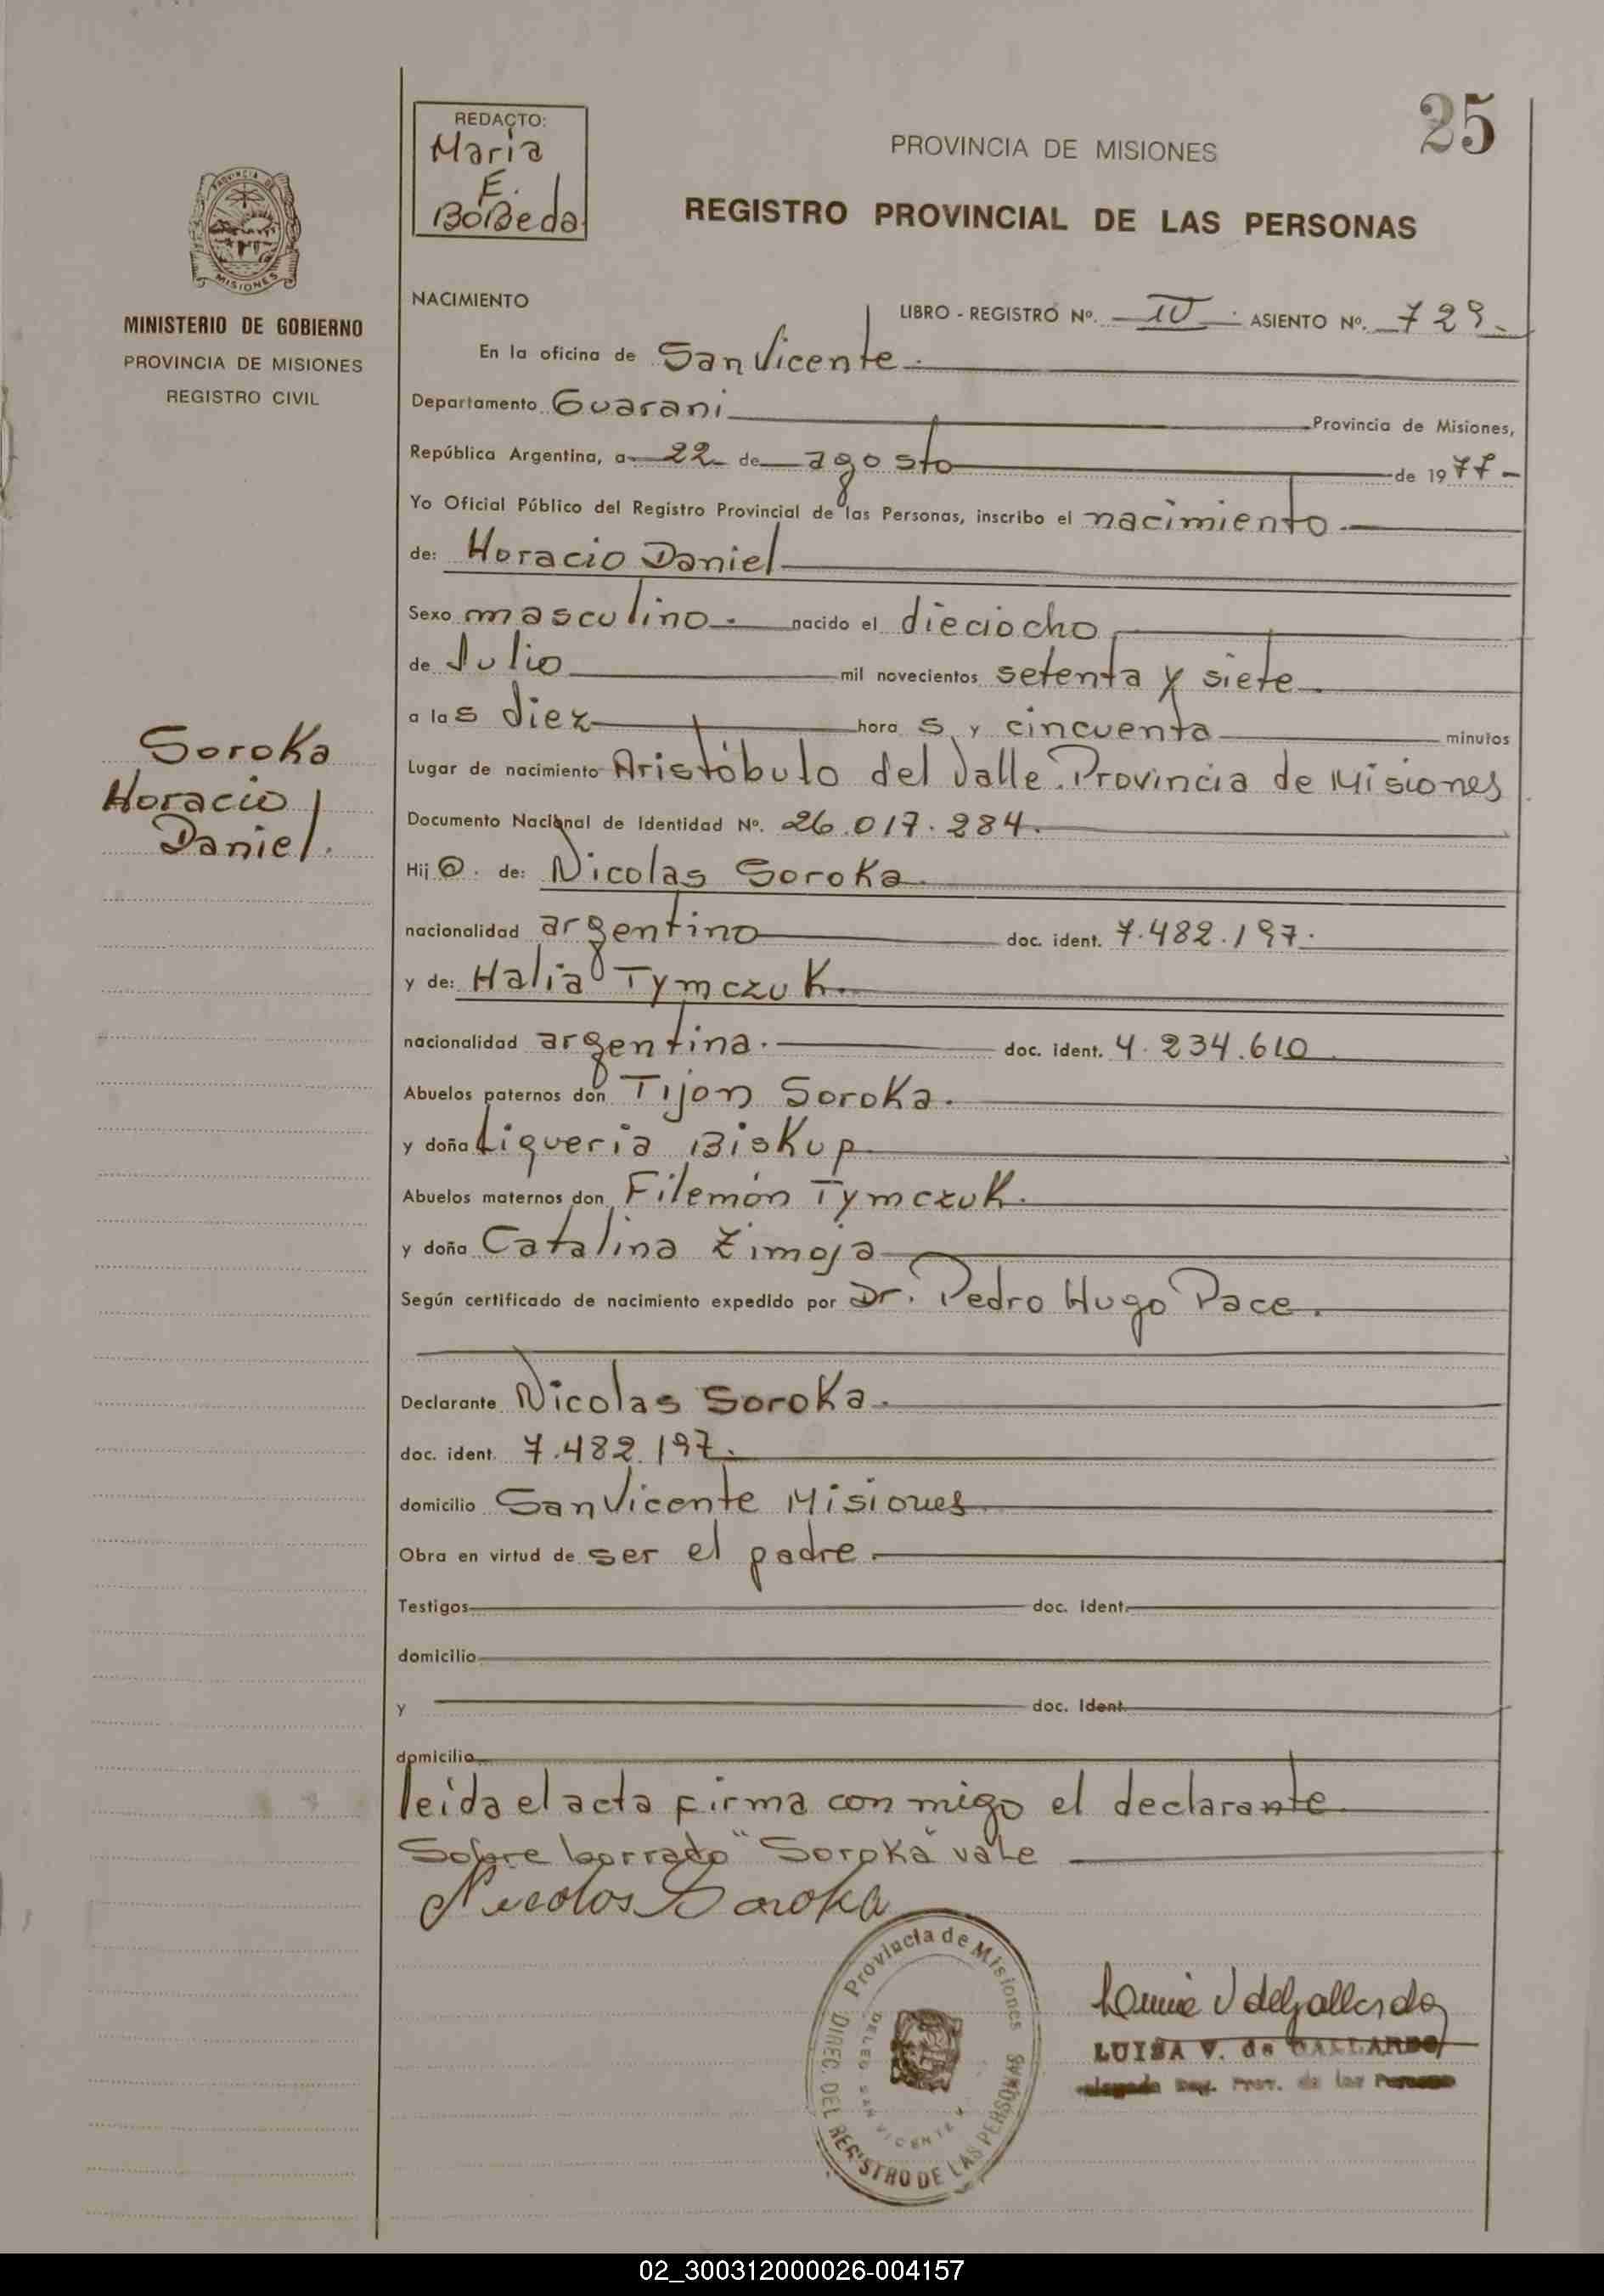 25
REDACTO:
Maria
E.
BoBeda
PROVINCIA DE MISIONES
REGISTRO PROVINCIAL DE LAS PERSONAS
MISIONES
MINISTERIO DE GOBIERNO
PROVINCIA DE MISIONES
REGISTRO CIVIL
NACIMIENTO LIBRO - REGISTRO Nº. IV ASIENTO Nº. 729.
En la oficina de San Vicente.
Departamento Guarani Provincia de Misiones,
República Argentina, a 22 de agosto de 1977-
Yo Oficial Público del Registro Provincial de las Personas, inscribo el nacimiento
de: Horacio Daniel
Sexo masculino. nacido el dieciocho
de Julio mil novecientos setenta y siete
a las diez horas y cincuenta minutos
Soroka
Horacio
Daniel.
Lugar de nacimiento Aristóbulo del Valle. Provincia de Misiones
Documento Nacional de Identidad Nº. 26.017.284.
Hijo. de: Nicolas Soroka
nacionalidad argentino doc. ident. 7.482.197.
y de: Halia Tymczuk.
nacionalidad argentina. doc. ident. 4.234.610
Abuelos paternos don Tijon Soroka.
y doña Liqueria Biskup
Abuelos maternos don Filemón Tymczuk.
y doña Catalina Zimoja
Según certificado de nacimiento expedido por Dr. Pedro Hugo Pace.
Declarante Nicolas Soroka.
doc. ident. 7.482.197.
domicilio San Vicente Misiones
Obra en virtud de ser el padre.
Testigos doc. ident.
domicilio
y doc. ident.
domicilio
leida el acta firma con migo el declarante
Sobre borrado "Soroka" vale
Nicolas Soroka
Provincia de Misiones
DIREC. DEL REGISTRO DE LAS PERSONAS
DELEG. SAN VICENTE
LUISA V. de GALLARDO
Reg. Prov. de las Personas
02_300312000026-004157